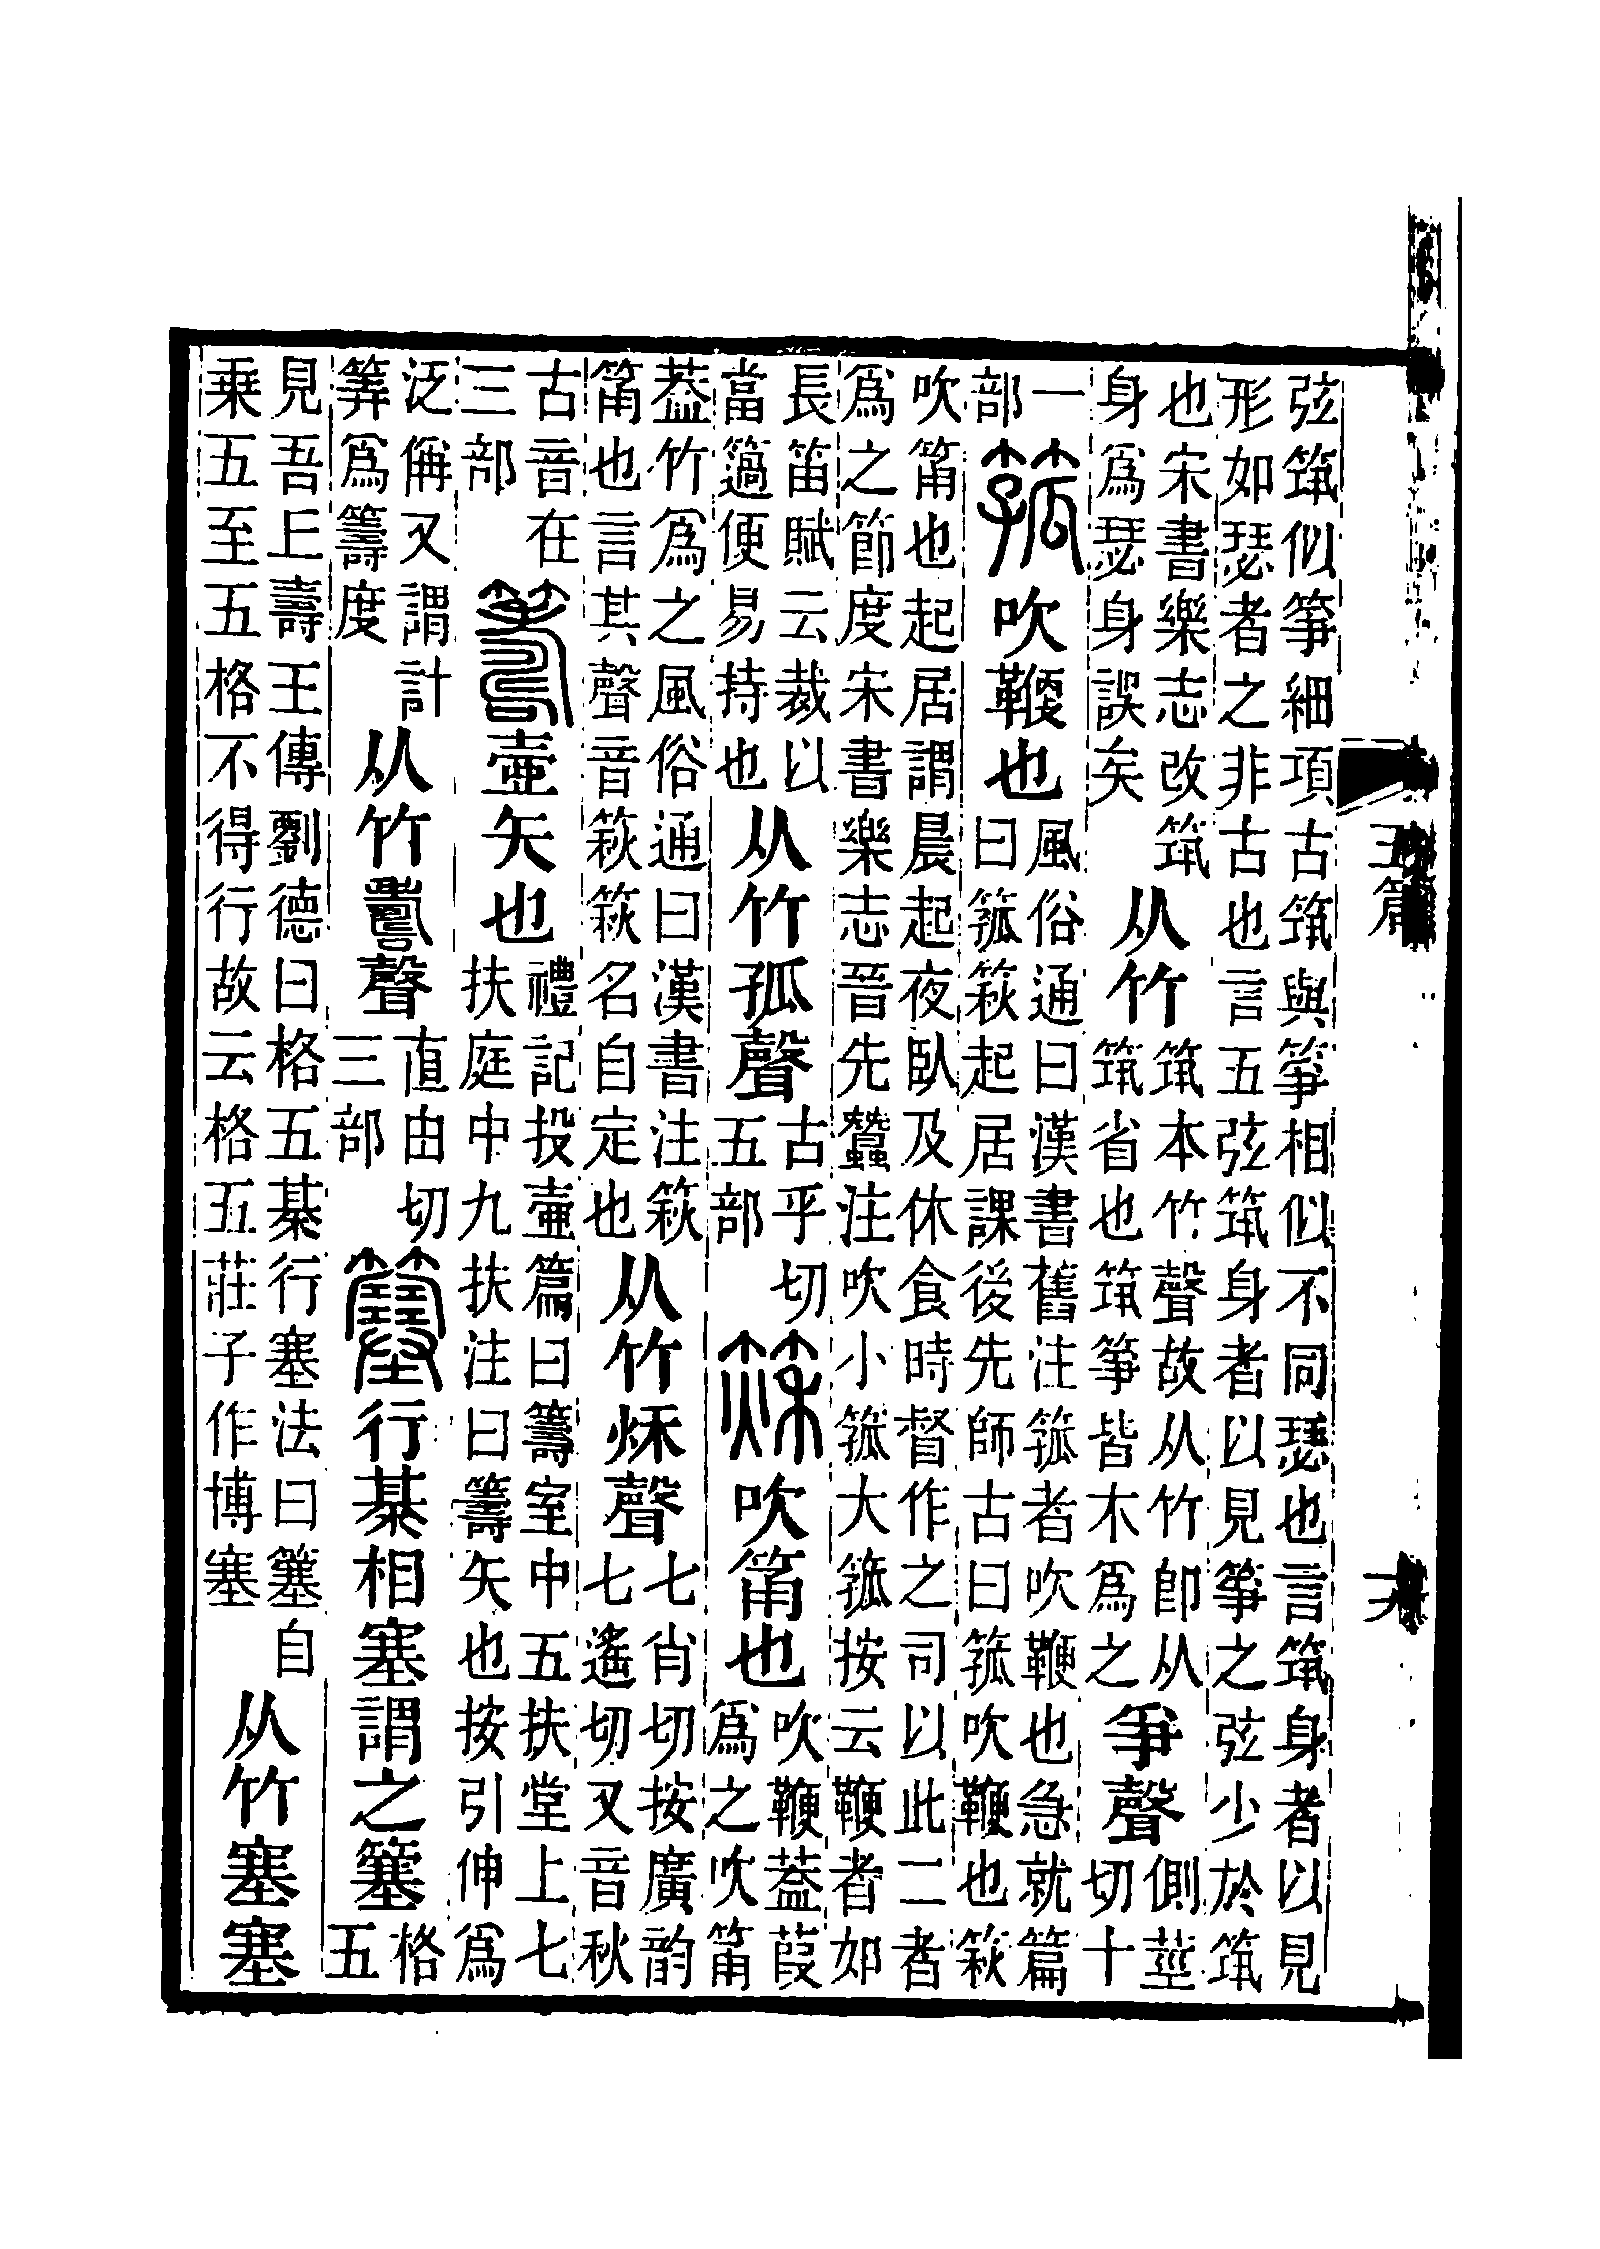 弦筑似箏細項古筑與箏相似不同瑟也言筑身者以見
形如瑟者之非古也言五弦筑身者以見箏之弦少於筑
也宋書樂志改筑
身爲瑟身誤矣
从竹
筑本竹聲故从竹卽从
筑省也筑箏皆木爲之
爭聲
側莖
切十
一
部
箛吹鞭也
風俗通曰漢書舊注箛者吹鞭也急就篇
曰箛篍起居課後先師古曰箛吹鞭也篍
吹筩也起居謂晨起夜臥及休食時督作之司以此二者
爲之節度宋書樂志晉先蠶注吹小箛大箛按云鞭者如
長笛賦云裁以
當簻便易持也
从竹孤聲
古乎切
五部
篍吹筩也
吹鞭葢葭
爲之吹筩
葢竹爲之風俗通曰漢書注篍
筩也言其聲音篍篍名自定也
从竹秌聲
七肖切按廣韵
七遙切又音秋
古音在
三部
籌壺矢也
禮記投壺篇曰籌室中五扶堂上七
扶庭中九扶注曰籌矢也按引伸爲
泛偁又謂計
筭爲籌度
从竹壽聲
直由切
三部
簺行棊相塞謂之簺
格
五
見吾丘壽王傳劉德曰格五棊行塞法曰簺自
乗五至五格不得行故云格五莊子作博塞
从竹塞塞
五篇